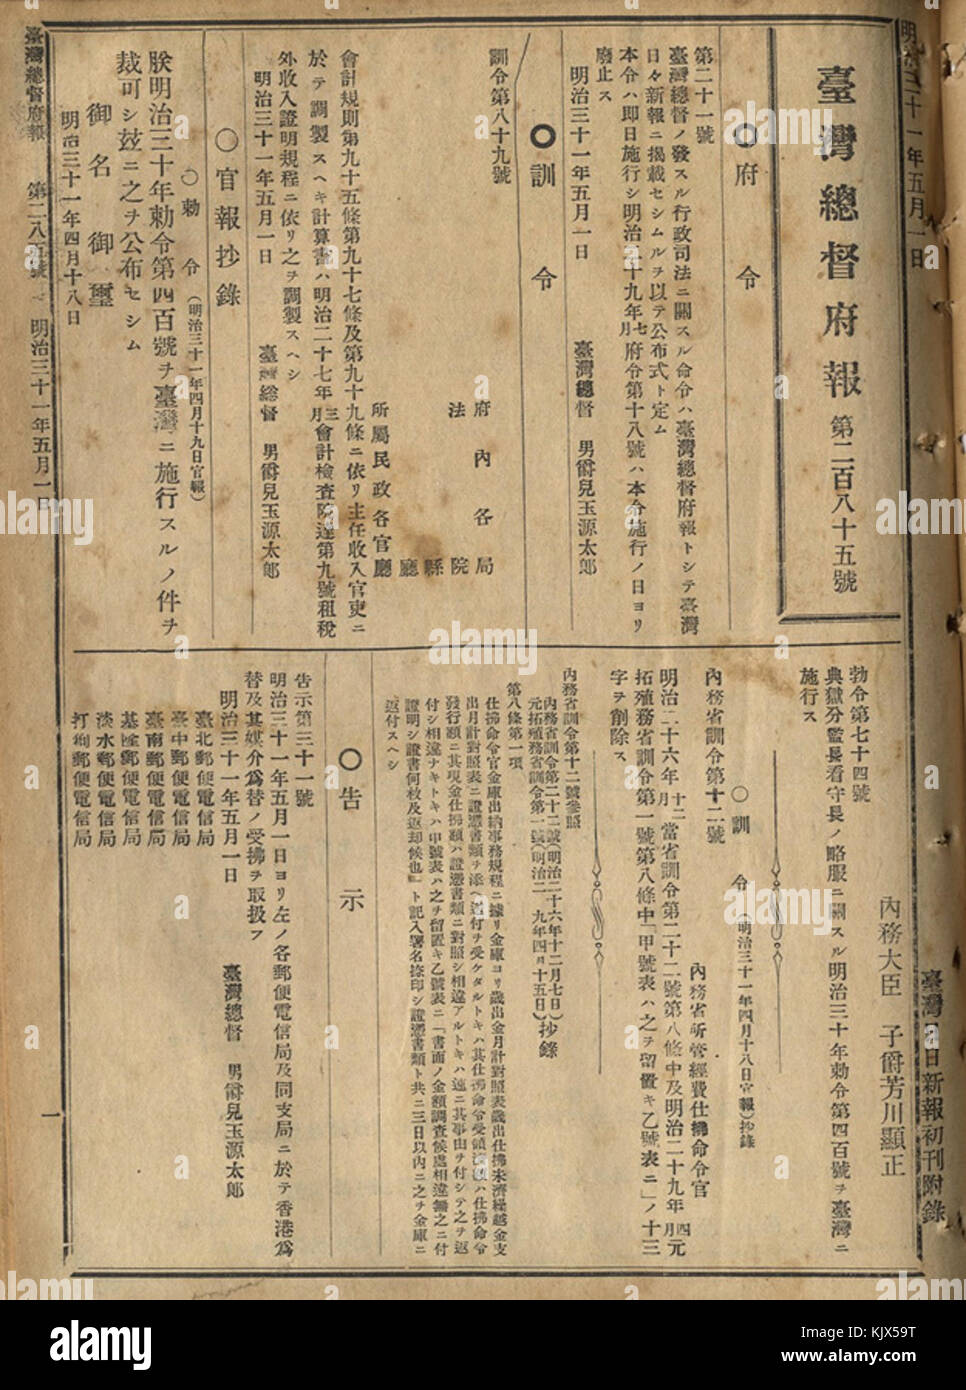 明治三十一年五月一日
臺灣日日新報初刊附錄
臺灣總督府報 第二百八十五號
〇府令
第二十一號
臺灣總督ノ發スル行政司法ニ關スル命令ハ臺灣總督府報トシテ臺灣
日々新報ニ揭載セシムルヲ以テ公布式ト定ム
本令ハ即日施行シ明治二十九年七月府令第十八號ハ本令施行ノ日ヨリ
廢止ス
明治三十一年五月一日
臺灣總督 男爵兒玉源太郎
〇訓令
訓令第八十九號
府內各局
法院
縣
廳
所屬民政各官廳
會計規則第九十五條第九十七條及第九十九條ニ依リ主任收入官吏ニ
於テ調製スヘキ計算書ハ明治二十七年三月會計檢查院達第九號租稅
外收入證明規程ニ依リ之ヲ調製スヘシ
明治三十一年五月一日
臺灣總督 男爵兒玉源太郎
〇官報抄錄
〇勅令(明治三十一年四月十九日官報)
朕明治三十年勅令第四百號ヲ臺灣ニ施行スルノ件ヲ
裁可シ玆ニ之ヲ公布セシム
御名御璽
明治三十一年四月十八日
內務大臣 子爵芳川顯正
勅令第七十四號
典獄分監長看守長ノ略服ニ關スル明治三十年勅令第四百號ヲ臺灣ニ
施行ス
〇訓令(明治三十一年四月十八日官報)抄錄
內務省訓令第十二號
內務省所管經費仕拂命令官
明治二十六年十二月當省訓令第二十二號第八條中及明治二十九年四月元
拓殖務省訓令第一號第八條中「甲號表ハ之ヲ留置キ乙號表ニ」ノ十三
字ヲ削除ス
內務省訓令第十二號參照
內務省訓令第二十二號(明治二十六年十二月七日)抄錄
元拓殖務省訓令第一號(明治二十九年四月十五日)抄錄
第八條第一項
仕拂命令官金庫出納事務規程ニ據リ金庫ヨリ歲出金月計對照表歲出仕拂未濟繰越金支
出月計對照表ニ證憑書類ヲ添ヘ送付ヲ受ケタルトキハ其仕拂命令受領濟額ハ仕拂命令
發行額ニ其現金仕拂額ハ證憑書類ニ對照シ相違アルトキハ速ニ其事由ヲ付シテ之ヲ返
付シ相違ナキトキハ甲號表ハ之ヲ留置キ乙號表ニ「書面ノ金額調查候處相違無之ニ付
證明シ證書何枚及返却候也」ト記入署名捺印シ證憑書類ト共ニ三日以內ニ之ヲ金庫ニ
返付スヘシ
〇告示
告示第三十一號
明治三十一年五月一日ヨリ左ノ各郵便電信局及同支局ニ於テ香港爲
替及其媒介爲替ノ受拂ヲ取扱フ
明治三十一年五月一日
臺灣總督 男爵兒玉源太郎
臺北郵便電信局
臺中郵便電信局
臺南郵便電信局
基隆郵便電信局
淡水郵便電信局
打狗郵便電信局
臺灣總督府報 第二八五號 明治三十一年五月一日
一
alamy
a
Image ID: KJX59T
www.alamy.com